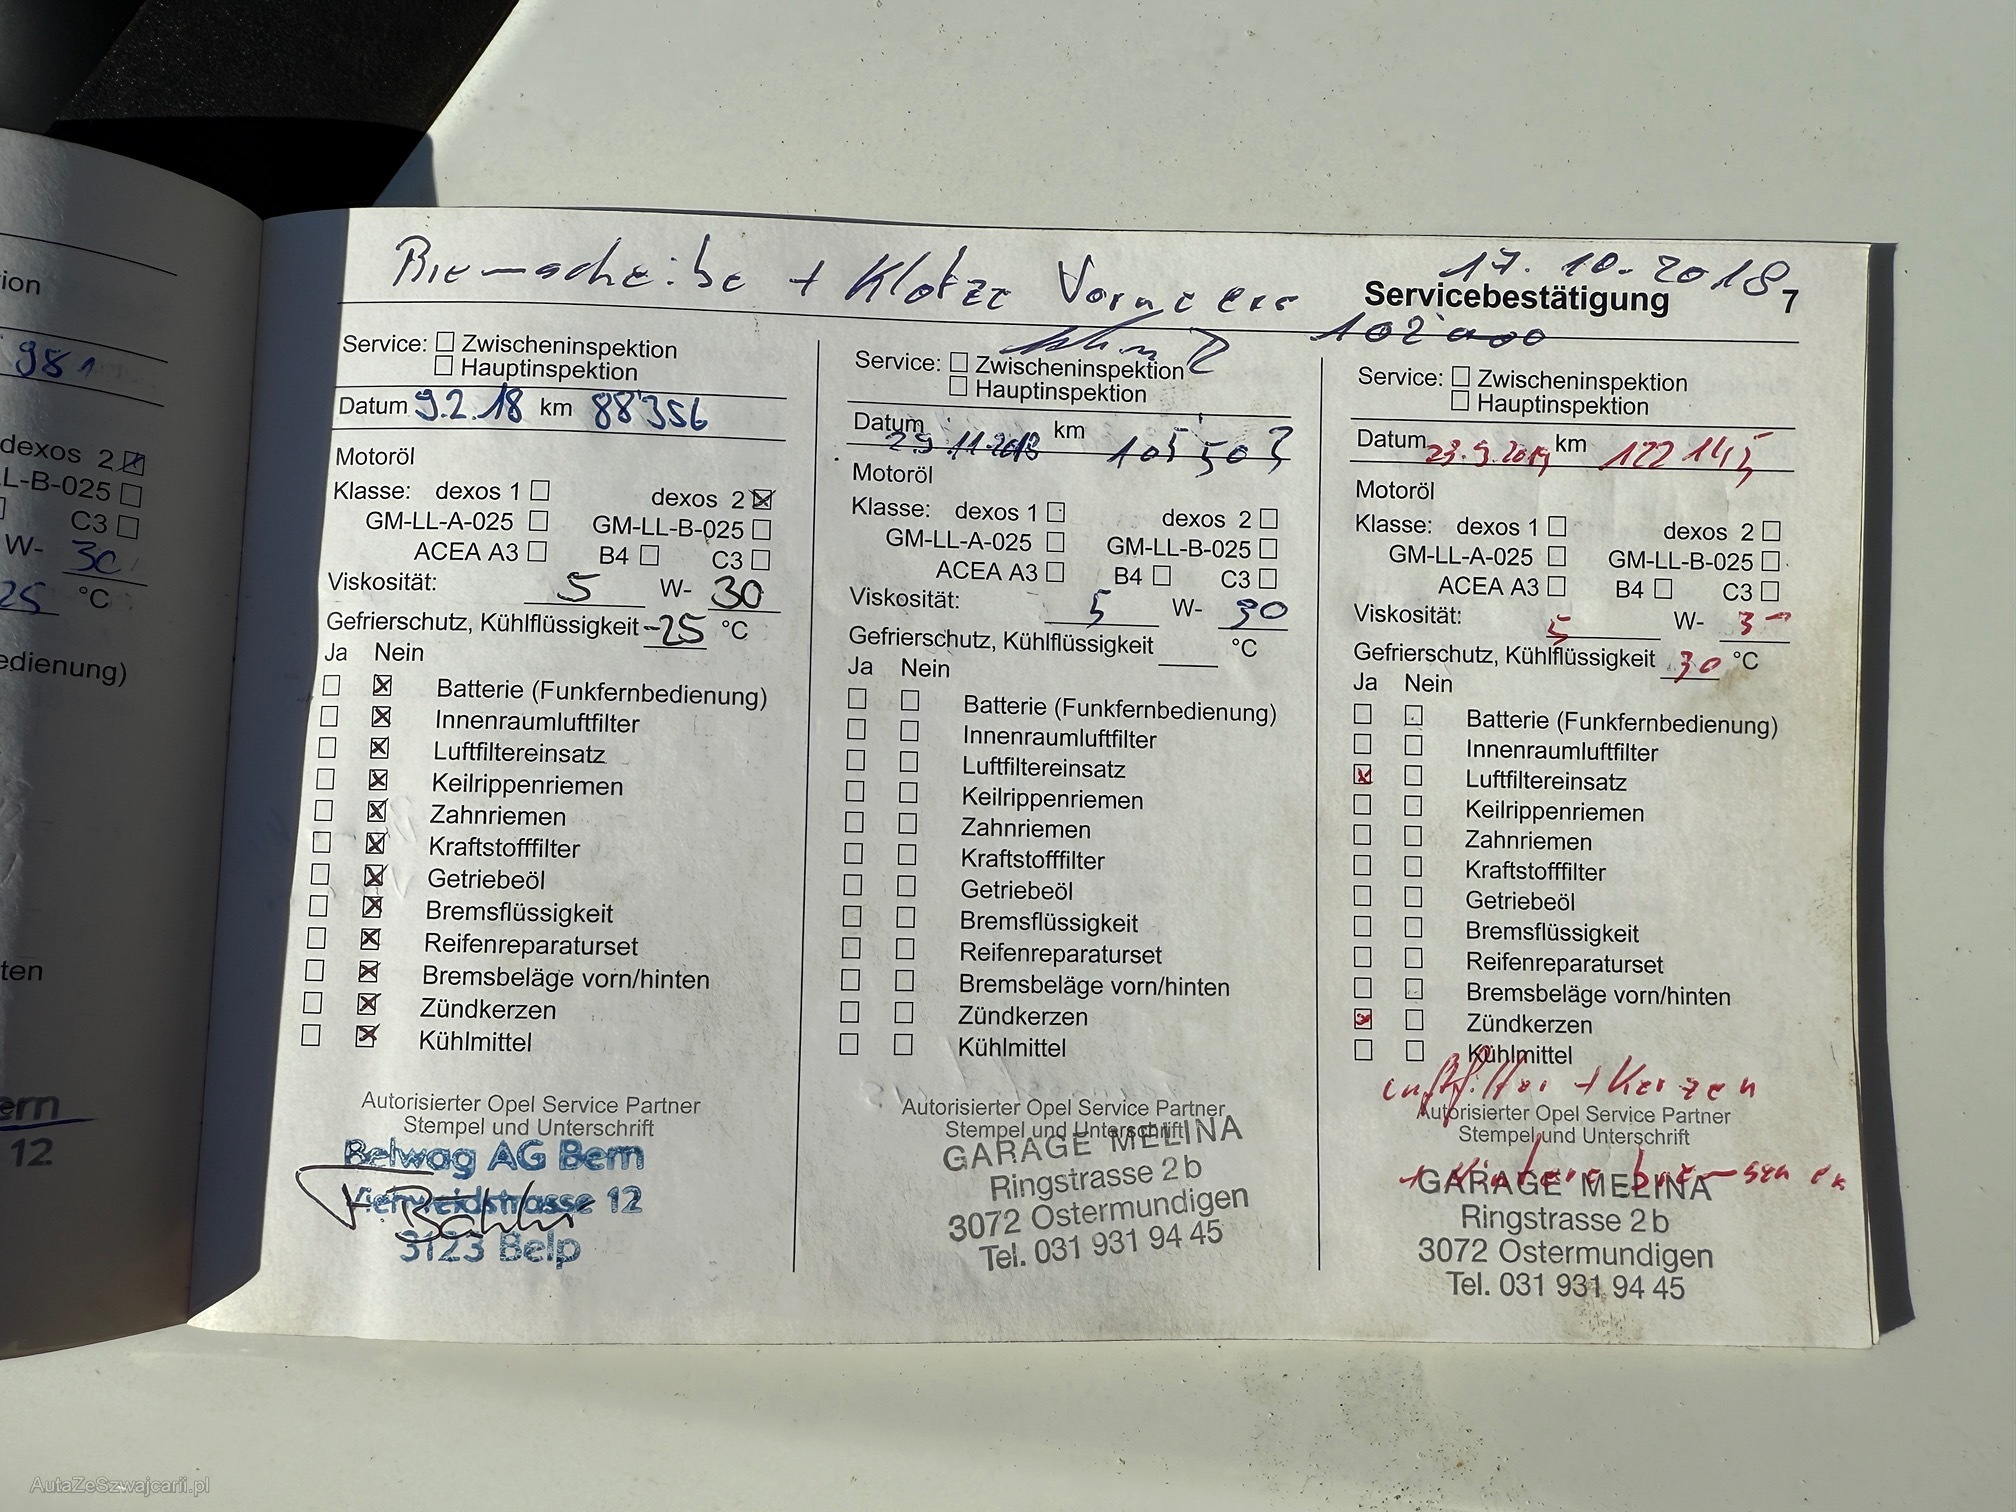 ion
981
dexos 2
LL-B-025
C3
W- 30
25 °C
edienung)
ten
ern
12
Bremscheibe + Klötze Vorne
17.10.2018
Servicebestätigung 7
102'000
Service: Zwischeninspektion
Hauptinspektion
Datum 9.2.18 km 88'356
Motoröl
Klasse: dexos 1 dexos 2
GM-LL-A-025 GM-LL-B-025
ACEA A3 B4 C3
Viskosität: 5 W- 30
Gefrierschutz, Kühlflüssigkeit -25 °C
Ja Nein
Batterie (Funkfernbedienung)
Innenraumluftfilter
Luftfiltereinsatz
Keilrippenriemen
Zahnriemen
Kraftstofffilter
Getriebeöl
Bremsflüssigkeit
Reifenreparaturset
Bremsbeläge vorn/hinten
Zündkerzen
Kühlmittel
Autorisierter Opel Service Partner
Stempel und Unterschrift
Belwag AG Bern
12
3123 Belp
Service: Zwischeninspektion
Hauptinspektion
Datum 29.11.2018 km 105'503
Motoröl
Klasse: dexos 1 dexos 2
GM-LL-A-025 GM-LL-B-025
ACEA A3 B4 C3
Viskosität: 5 W- 30
Gefrierschutz, Kühlflüssigkeit °C
Ja Nein
Batterie (Funkfernbedienung)
Innenraumluftfilter
Luftfiltereinsatz
Keilrippenriemen
Zahnriemen
Kraftstofffilter
Getriebeöl
Bremsflüssigkeit
Reifenreparaturset
Bremsbeläge vorn/hinten
Zündkerzen
Kühlmittel
Autorisierter Opel Service Partner
Stempel und Unterschrift
GARAGE MELINA
Ringstrasse 2b
3072 Ostermundigen
Tel. 031 931 94 45
Service: Zwischeninspektion
Hauptinspektion
Datum 23.9.2019 km 122145
Motoröl
Klasse: dexos 1 dexos 2
GM-LL-A-025 GM-LL-B-025
ACEA A3 B4 C3
Viskosität: 5 W- 30
Gefrierschutz, Kühlflüssigkeit 30 °C
Ja Nein
Batterie (Funkfernbedienung)
Innenraumluftfilter
Luftfiltereinsatz
Keilrippenriemen
Zahnriemen
Kraftstofffilter
Getriebeöl
Bremsflüssigkeit
Reifenreparaturset
Bremsbeläge vorn/hinten
Zündkerzen
Kühlmittel
Luftfilter + Kerzen
Autorisierter Opel Service Partner
Stempel und Unterschrift
+ Hintere bremsen
GARAGE MELINA
Ringstrasse 2b
3072 Ostermundigen
Tel. 031 931 94 45
AutaZeSzwajcarii.pl